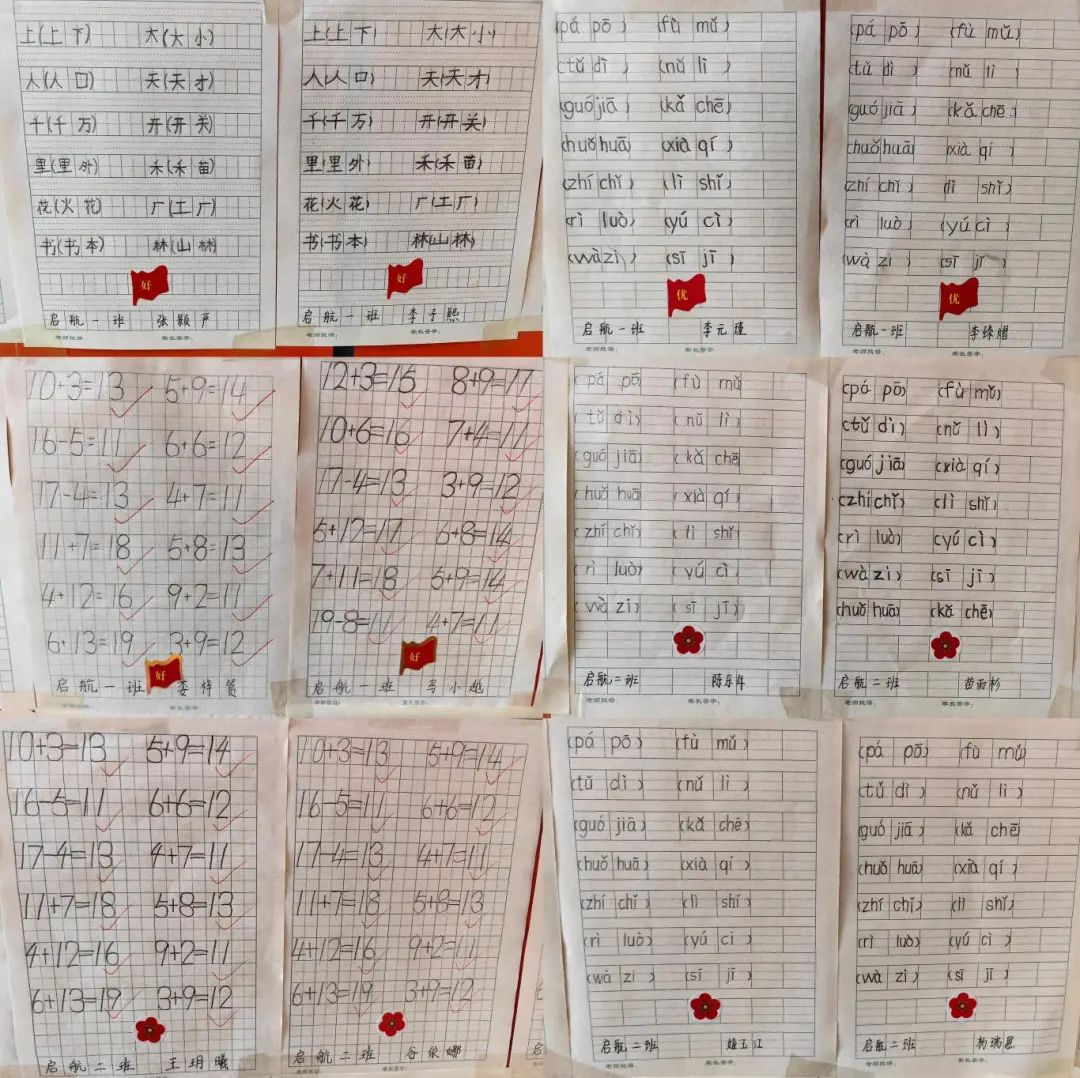 上(上下) 大(大小)
人(人口) 天(天才)
千(千万) 开(开关)
里(里外) 禾(禾苗)
花(火花) 厂(工厂)
书(书本) 林(山林)
好
启航一班 张颢严
老师批语: 家长签字:
上(上下) 大(大小)
人(人口) 天(天才)
千(千万) 开(开关)
里(里外) 禾(禾苗)
花(火花) 厂(工厂)
书(书本) 林(山林)
好
启航一班 李子熙
老师批语: 家长签字:
(pá pō) (fù mǔ)
(tǔ dì) (nǔ lì)
(guó jiā) (kǎ chē)
(huǒ huā) (xià qí)
(zhí chǐ) (lì shǐ)
(rì luò) (yú cì)
(wà zi) (sī jī)
优
启航一班 李元
老师批语: 家长签字:
(pá pō) (fù mǔ)
(tǔ dì) (nǔ lì)
(guó jiā) (kǎ chē)
(huǒ huā) (xià qí)
(zhí chǐ) (lì shǐ)
(rì luò) (yú cì)
(wà zi) (sī jī)
优
启航一班 李
老师批语: 家长签字:
10+3=13 5+9=14
16-5=11 6+6=12
17-4=13 4+7=11
11+7=18 5+8=13
4+12=16 9+2=11
6+13=19 3+9=12
好
启航一班
家长签字:
12+3=15 8+9=17
10+6=16 7+4=11
17-4=13 3+9=12
5+12=17 6+8=14
7+11=18 5+9=14
19-8=11 4+7=11
好
启航一班 马小越
老师批语: 家长签字:
(pá pō) (fù mǔ
(tǔ dì) (nǔ lì)
(guó jiā) (kǎ chē)
(huǒ huā (xià qí)
(zhí chǐ) (lì shǐ)
(rì luò) (yú cì)
(wà zi) (sī jī)
启航二班 陈
老师批语: 家长签字:
(pá pō) (fù mǔ)
(tǔ dì) (nǔ lì)
(guó jiā) (xià qí)
(zhí chǐ) (lì shǐ)
(rì luò) (yú cì)
(wà zi) (sī jī)
(huǒ huā) (kǎ chē)
启航二班 苗雨杉
老师批语: 家长签字:
10+3=13 5+9=14
16-5=11 6+6=12
17-4=13 4+7=11
11+7=18 5+8=13
4+12=16 9+2=11
6+13=19 3+9=12
启航二班 王玥曦
老师批语: 家长签字:
10+3=13 5+9=14
16-5=11 6+6=12
17-4=13 4+7=11
11+7=18 5+8=13
4+12=16 9+2=11
6+13=19 3+9=12
启航二班 谷依娜
老师批语: 家长签字:
(pá pō) (fù mǔ)
(tǔ dì) (nǔ lì)
(guó jiā) (kǎ chē)
(huǒ huā) (xià qí)
(zhí chǐ) (lì shǐ)
(rì luò) (yú cì)
(wà zi (sī jī)
启航二班 姬玉江
老师批语: 家长签字:
(pá pō) (fù mǔ)
(tǔ dì) (nǔ lì)
(guó jiā) (kǎ chē)
(huǒ huā) (xià qí)
(zhí chǐ) (lì shǐ)
(rì luò) (yú cì)
(wà zi) (sī jī)
启航二班 杨瑞恩
老师批语: 家长签字: